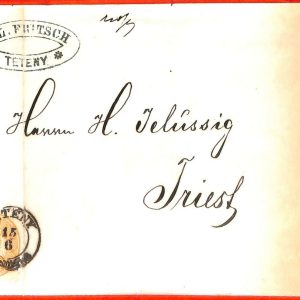 L. FRITSCH
TETENY
Herrn H. Jelussig
Triest
TETENY
15
6